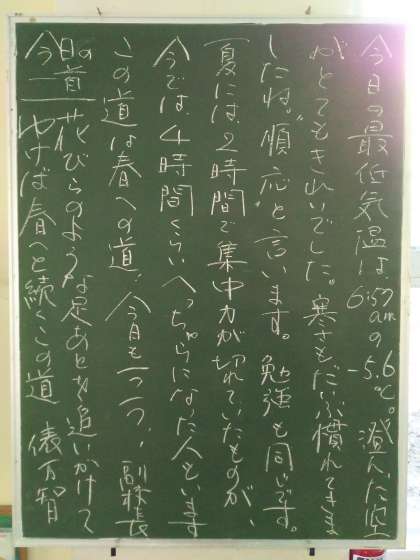 今日の最低気温は6:57amの-5.6℃。澄んだ空
がとてもきれいでした。寒さもだいぶ慣れてきま
したね。"順応"と言います。勉強も同じです。
夏には、2時間で集中力が切れていたものが、
今では、4時間くらいへっちゃらになった人もいます
この道は春への道。今日も一つ一つ。副校長
今日の一首 花びらのような足あとを追いかけて
ゆけば春へと続くこの道 俵万智